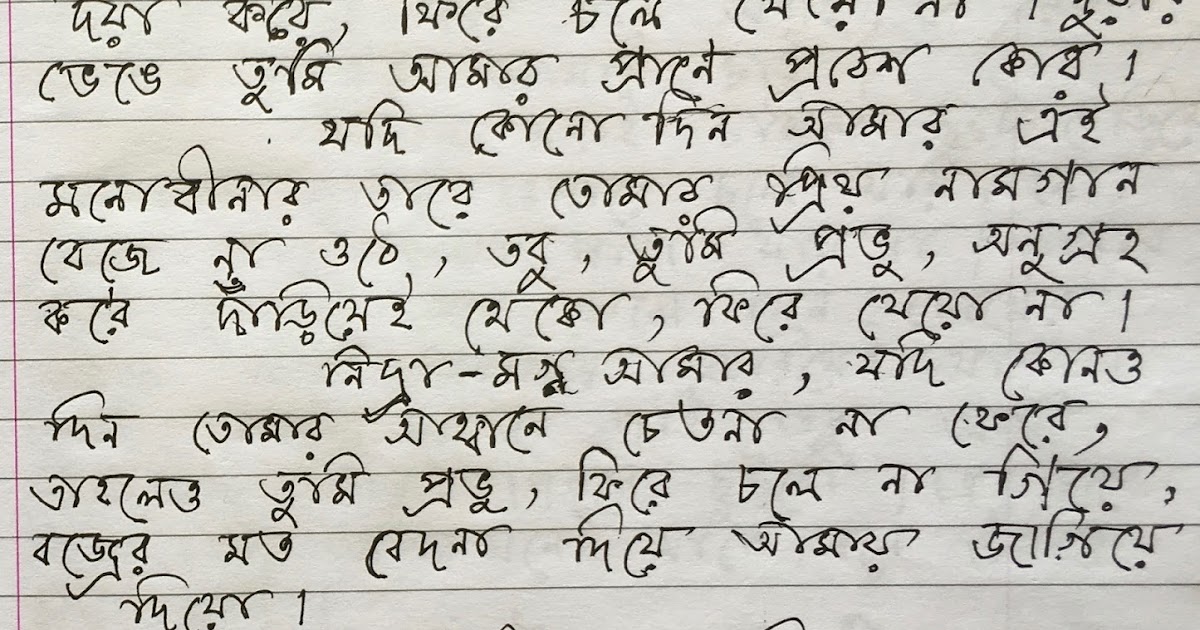 দয়া করে, ফিরে চলে যেয়ো না । দুয়ার
ভেঙে তুমি আমার প্রানে প্রবেশ কোর ।
যদি কোনো দিন আমার এই
মনোবীনার তারে তোমার প্রিয় নামগান
বেজে না ওঠে, তবু, তুমি প্রভু, অনুগ্রহ
করে দাঁড়িয়েই থেকো, ফিরে যেয়ো না ।
নিদ্রা-মগ্ন আমার, যদি কোনও
দিন তোমার আহ্বানে চেতনা না ফেরে,
তাহলেও তুমি প্রভু, ফিরে চলে না গিয়ে,
বজ্রের মত বেদনা দিয়ে আমায় জাগিয়ে
দিয়ো ।